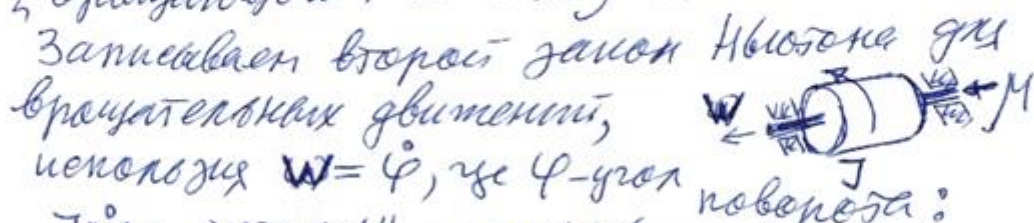 Записываем второй закон Ньютона для
вращательных движений,
W
M
используя W = φ̇, где φ-угол
J
поворота: